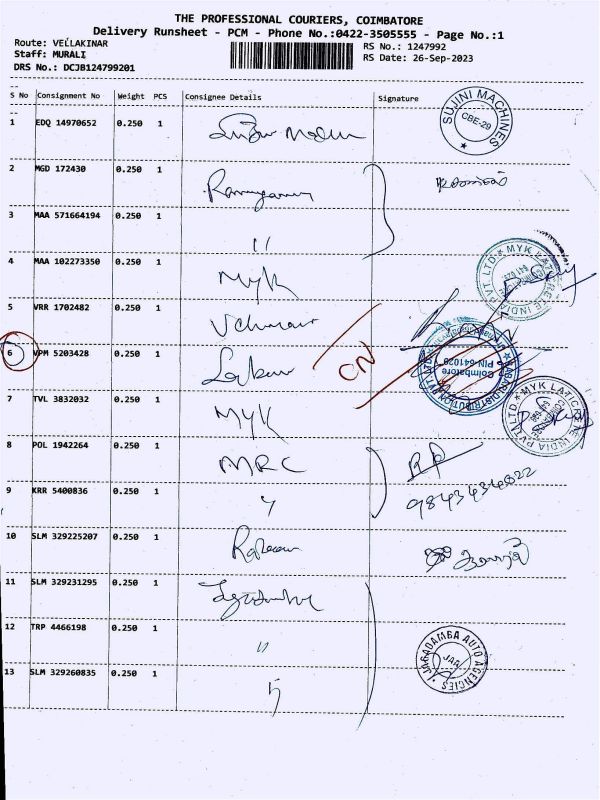 THE PROFESSIONAL COURIERS, COIMBATORE
Delivery Runsheet - PCM - Phone No.:0422-3505555 - Page No.:1
Route: VELLAKINAR
Staff: MURALI
DRS No.: DCJB124799201
RS No.: 1247992
RS Date: 26-Sep-2023
S No Consignment No Weight PCS Consignee Details Signature
1 EDQ 14970652 0.250 1
SUJINI MACHINES
CBE-29
2 MGD 172430 0.250 1
3 MAA 571664194 0.250 1 "
4 MAA 102273350 0.250 1 MYK
MYK LATICRETE INDIA PVT. LTD.
5 VRR 1702482 0.250 1
6 VPM 5203428 0.250 1
CN
Coimbatore
PIN 641029
7 TVL 3832032 0.250 1 MYK
MYK LATICRETE INDIA PVT. LTD.
8 POL 1942264 0.250 1 MRC
9 KRR 5400836 0.250 1 "
9843434822
10 SLM 329225207 0.250 1
11 SLM 329231295 0.250 1
12 TRP 4466198 0.250 1 "
JAGADAMBA AUTO AGENCIES
JAA
13 SLM 329260835 0.250 1